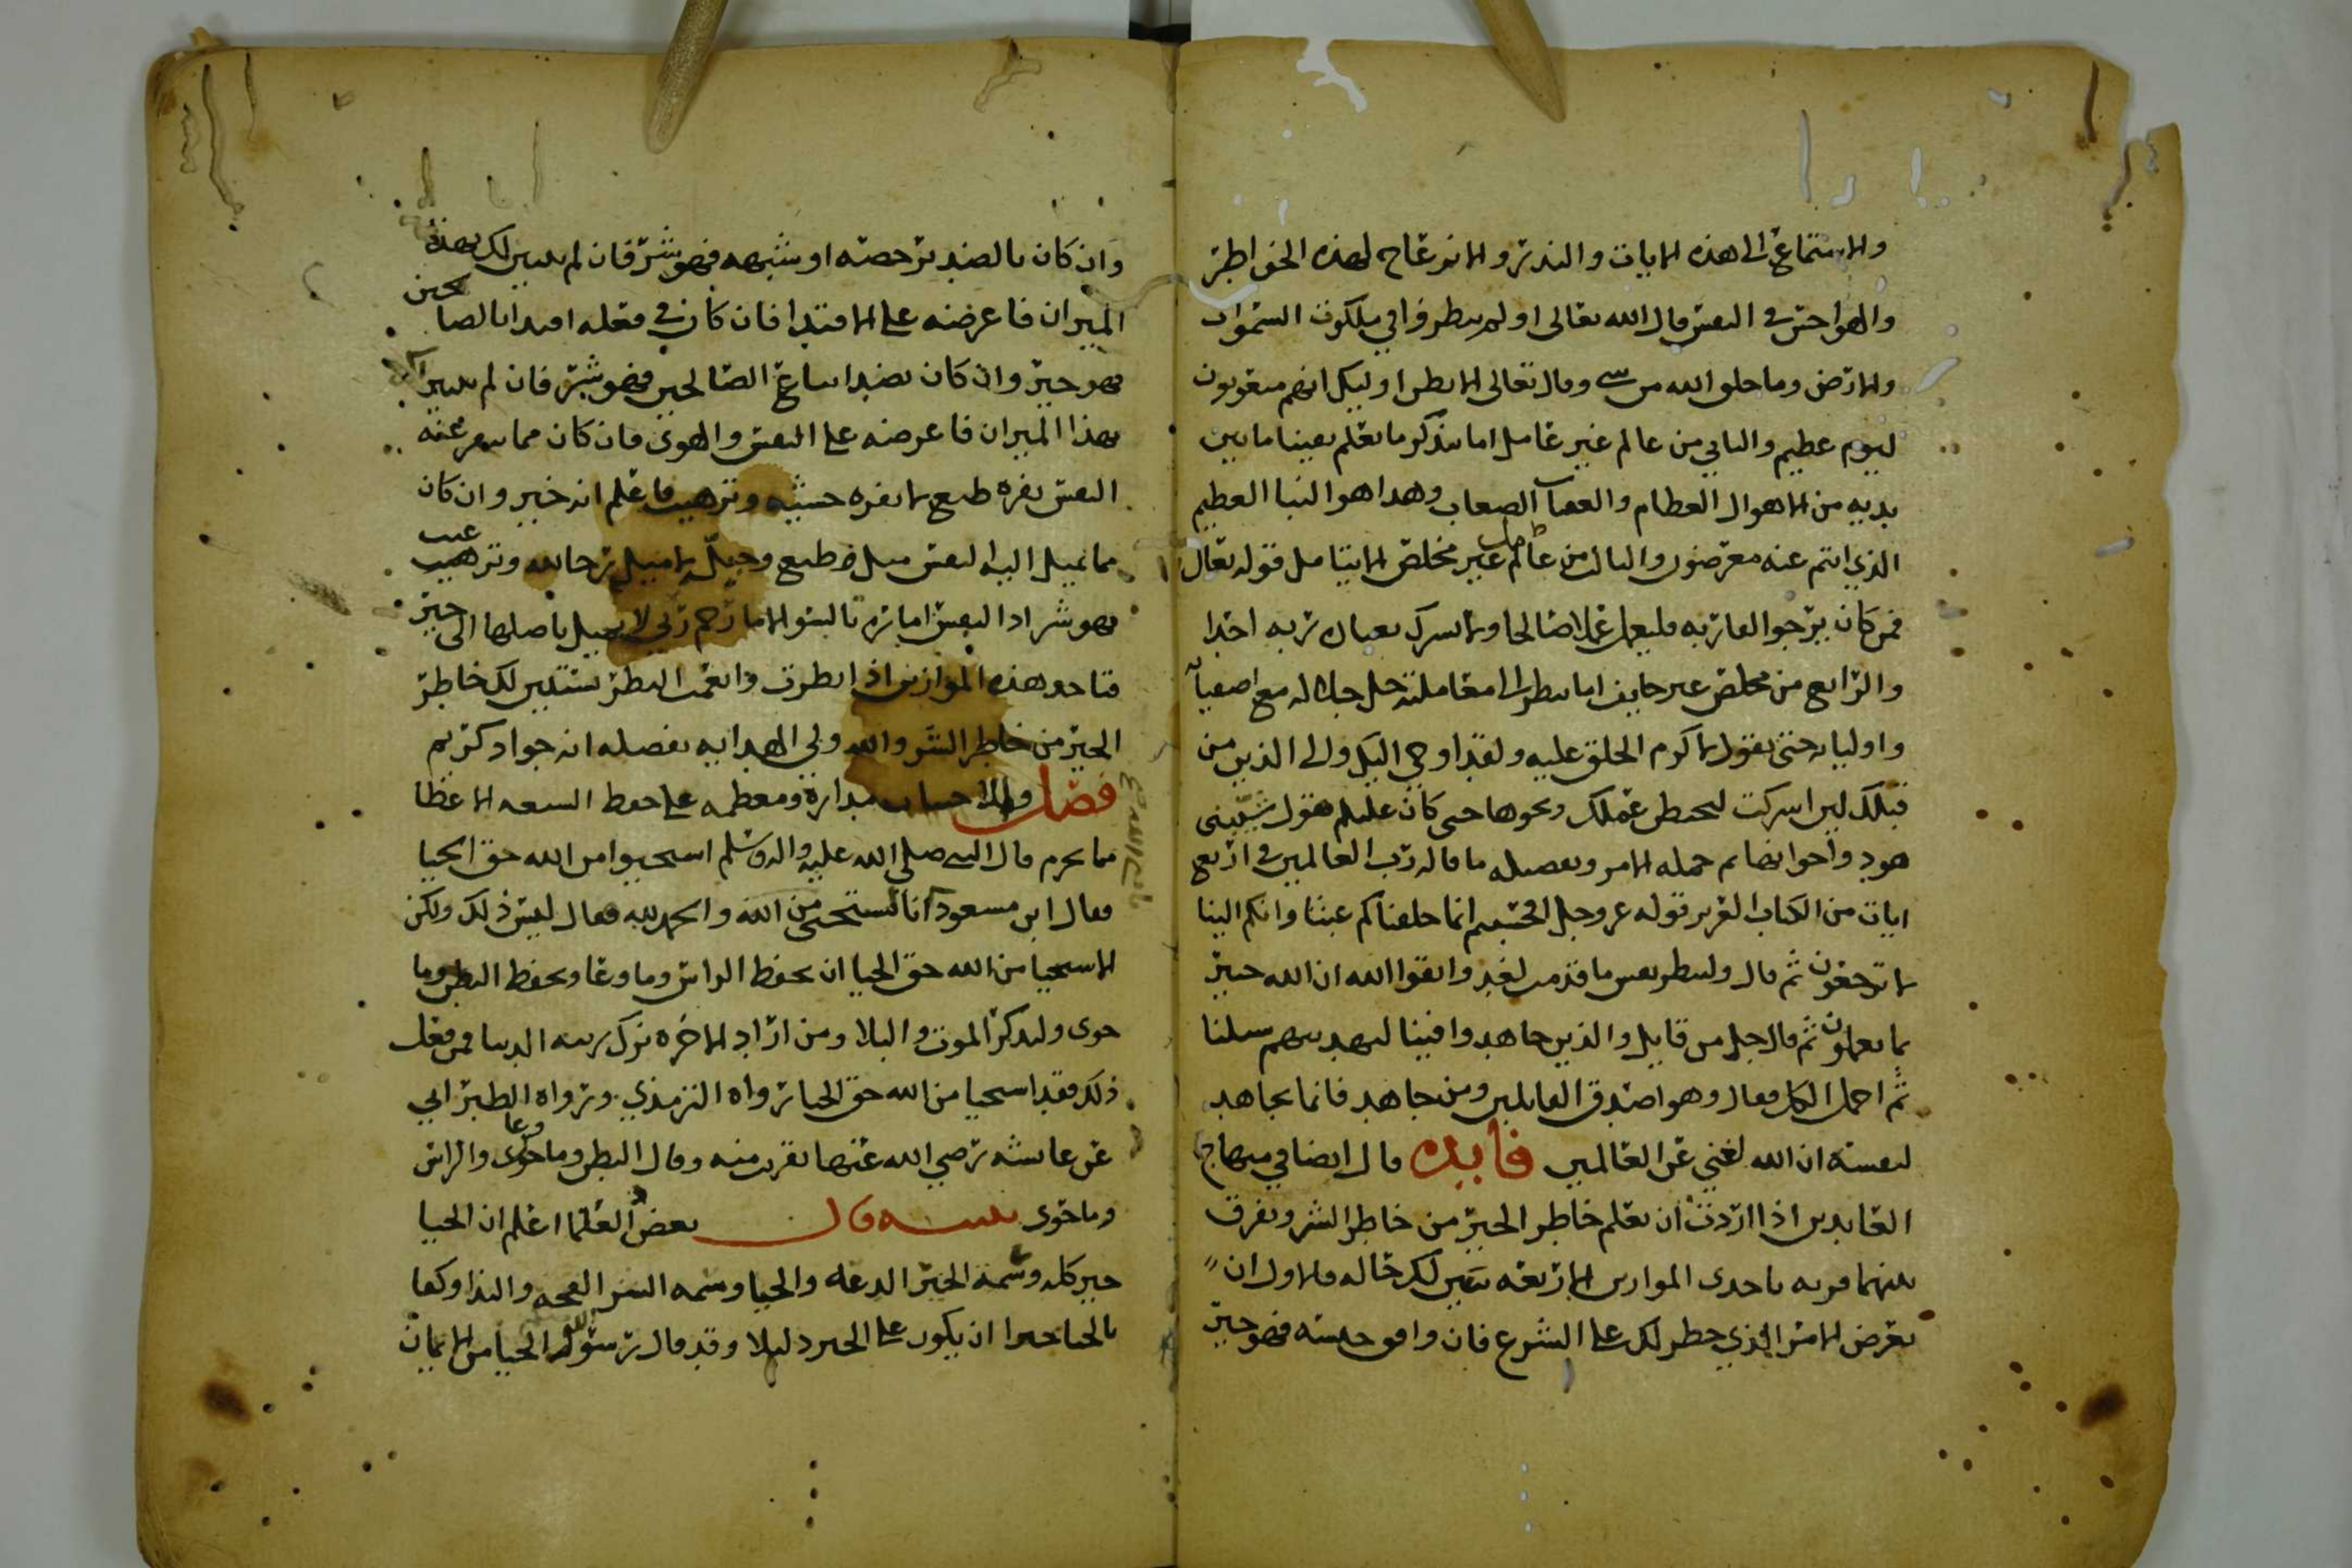 والاستماع الى هذه الايات والنذر والانزعاج لهذه الخواطر
والهواجس في النفس قال الله تعالى اولم ينظروا في ملكوت السموات
والارض وما خلق الله من شي وقال تعالى الا يظن اوليك انهم مبعوثون
ليوم عظيم والثاني من عالم غير عامل اما يتذكر ما يعلم يقينا ما بين
يديه من الاهوال العظام والعقبات الصعاب وهذا هو النبا العظيم
الذي انتم عنه معرضون والثالث من عالم عامل غير مخلص الا يتامل قوله تعالى
فمن كان يرجو لقا ربه فليعمل عملا صالحا ولا يشرك بعبادة ربه احدا
والرابع من مخلص غير خايف اما ينظر الى معاملته جل جلاله مع اصفيا
واوليايه حتى يقول لاكرم الخلق عليه ولقد اوحي اليك والى الذين من
قبلك لين اشركت ليحبطن عملك ونحوها حتى كان عليلم يقول شيبتني
هود واخواتها ثم جملة الامر وتفصيله ما قاله رب العالمين في اربع
ايات من الكتاب العزيز قوله عز وجل افحسبتم انما خلقناكم عبثا وانكم الينا
لا ترجعون ثم قال ولتنظر نفس ما قدمت لغد واتقوا الله ان الله خبير
بما تعملون ثم قال جل من قايل والذين جاهدوا فينا لنهدينهم سبلنا
ثم اجمل الكل فقال وهو اصدق القايلين ومن جاهد فانما يجاهد
لنفسه ان الله لغني عن العالمين فايده قال ايضا في منهاج
العابدين اذا اردت ان تعلم خاطر الخير من خاطر الشر وتفرق
بينهما فزنه باحدى الموازين الاربعة يتبين لك حاله فالاول ان
تعرض الامر الذي خطر لك على الشرع فان وافق جنسه فهو خير
وان كان بالضد برخصته او شبهه فهو شر فان لم يتبين لك بهذا
الميزان فاعرضه على الاقتدا فان كان في فعله اقتدا بالصالحين
فهو خير وان كان بضد اتباع الصالحين فهو شر فان لم يتبين
بهذا الميزان فاعرضه على النفس والهوى فان كان مما تنفر عنه
النفس نفرة طبع لا نفرة خشية وترهيب فاعلم انه خير وان كان
مما تميل اليه النفس ميل طبع وجبلة لا ميل رجا لله وترغيب
فهو شر اذ النفس امارة بالسو الا ما رحم ربي لا تميل باصلها الى خير
فباحد هذه الموازين اذا نظرت وانعمت النظر يستبين لك خاطر
الخير من خاطر الشر والله ولي الهداية بفضله انه جواد كريم
فصل والاحسان مداره ومعظمه على حفظ السبعه الاعضا
مما يحرم قال النبي صلى الله عليه واله وسلم استحيوا من الله حق الحيا
فقال ابن مسعود انا نستحيي من الله والحمد لله فقال ليس ذلك ولكن
الاستحيا من الله حق الحيا ان يحفظ الراس وما وعا ويحفظ البطن وما
حوى وليذكر الموت والبلا ومن اراد الاخرة ترك زينة الدنيا فمن فعل
ذلك فقد استحيا من الله حق الحيا رواه الترمذي ورواه الطبراني
عن عائشه رضي الله عنها بقرب منه وقال البطن وما وعا والراس
وما حوى تنبيه قال بعض العلما اعلم ان الحيا
خير كله وسمة الخير الدعة والحيا وسمة الشر القحه والبذا وكفا
بالحيا خيرا ان يكون على الخير دليلا وقد قال رسول الله الحيا من الايمان